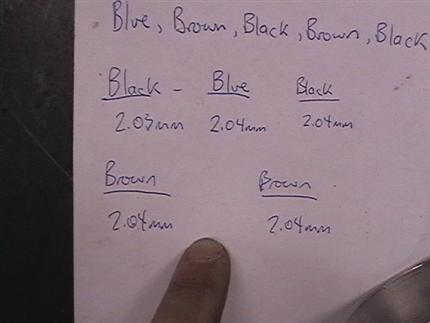 Blue, Brown, Black, Brown, Black
Black - Blue Black
2.03mm 2.04mm 2.04mm
Brown Brown
2.04mm 2.04mm